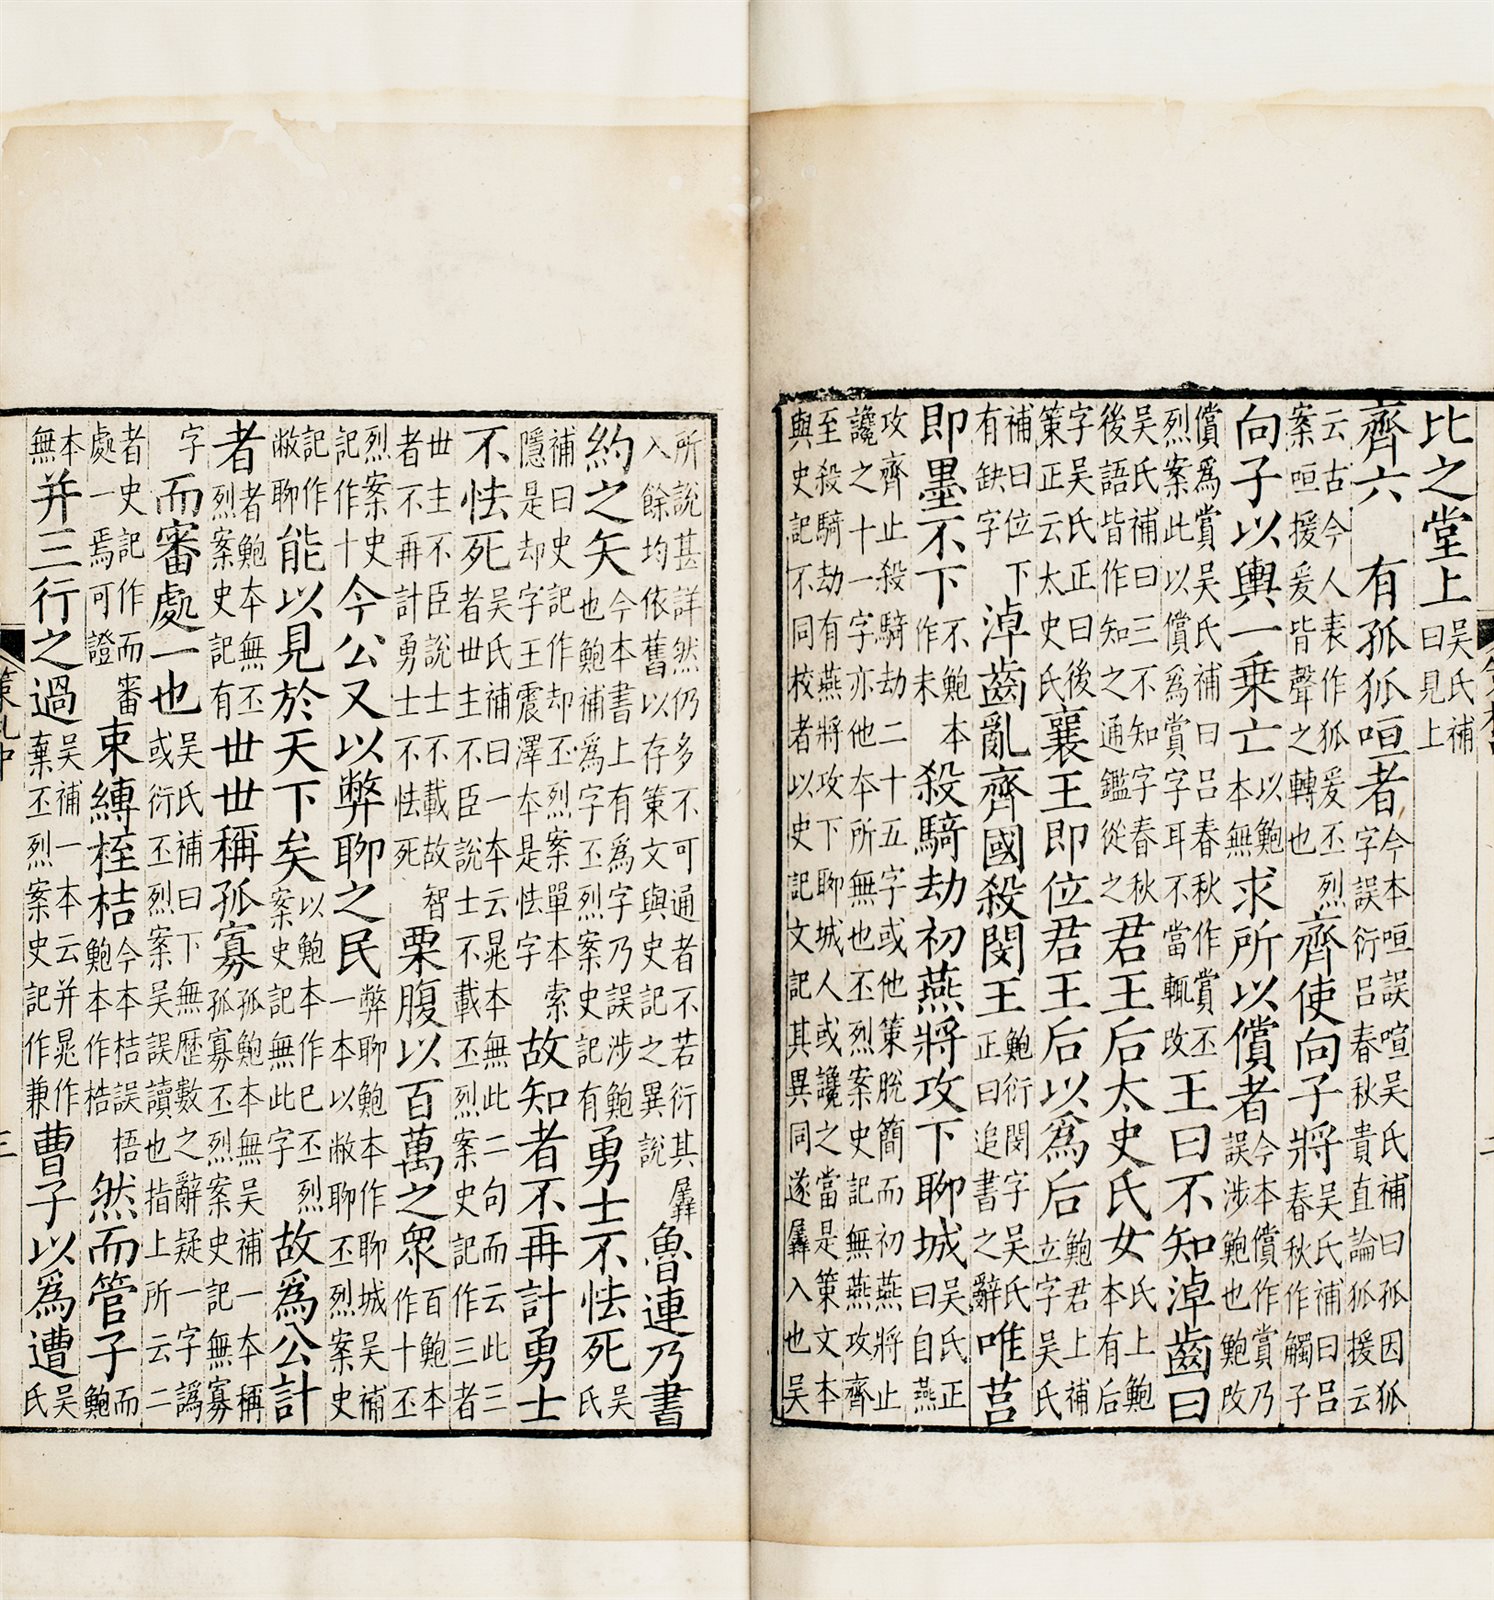 比之堂上吳氏補曰見上
齊六 有孤狐咺者今本咺誤喧吳氏補曰孤因狐字誤衍呂春秋貴直論狐援云
云古今人表作狐爰丕烈案咺援爰皆聲之轉也齊使向子將吳氏補曰呂春秋作觸子
向子以輿一乘亡以鮑本無求所以償者今本償作賞乃誤涉鮑也鮑改
償爲賞吳氏補曰呂春秋作賞丕烈案此以償爲賞字耳不當輒改王曰不知淖齒曰
吳氏補曰三不知字春秋後語皆作知之通鑑從之君王后太史氏女氏上鮑本有后
字吳氏正曰後策正云太史氏襄王即位君王后以爲后鮑君上補立字吳氏
補曰位下有缺字淖齒亂齊國殺閔王鮑衍閔字吳氏正曰追書之辭唯莒
即墨不下不鮑本作未殺騎劫初燕將攻下聊城吳氏正曰自燕
攻齊止殺騎劫二十五字或他策脫簡而初燕將止讒之十一字亦他本所無也丕烈案史記無燕攻齊
至殺騎劫有燕將攻下聊城人或讒之當是策文本與史記不同校者以史記文記其異同遂羼入也吳
所說甚詳然仍多不可通者不若衍其羼入餘均依舊以存策文與史記之異說魯連乃書
約之矢今本書上有爲字乃誤涉鮑也鮑補爲字丕烈案史記有勇士不怯死吳氏
補曰史記作却丕烈案單本索隱是却字王震澤本是怯字故知者不再計勇士
不怯死吳氏補曰一本云晁本無此二句而云此三者世主不臣說士不載丕烈案史記作三者
世主不臣說士不載故智者不再計勇士不怯死栗腹以百萬之眾百鮑本作十丕
烈案史記作十今公又以弊聊之民弊聊鮑本作聊城吳補一本以敝聊丕烈案史
記作敝聊能以見於天下矣以鮑本作已丕烈案史記無此字故爲公計
者者鮑本無丕烈案史記有世世稱孤寡孤鮑本無吳補一本稱孤寡丕烈案史記無寡
字而審處一也吳氏補曰下無歷數之辭疑一字譌或衍丕烈案吳誤讀也指上所云二
者史記作而審處一焉可證束縛桎桔今本桔誤梧鮑本作梏然而管子而鮑
本無并三行之過吳補一本云并晁作棄丕烈案史記作兼曹子以爲遭吳氏
策札中 三